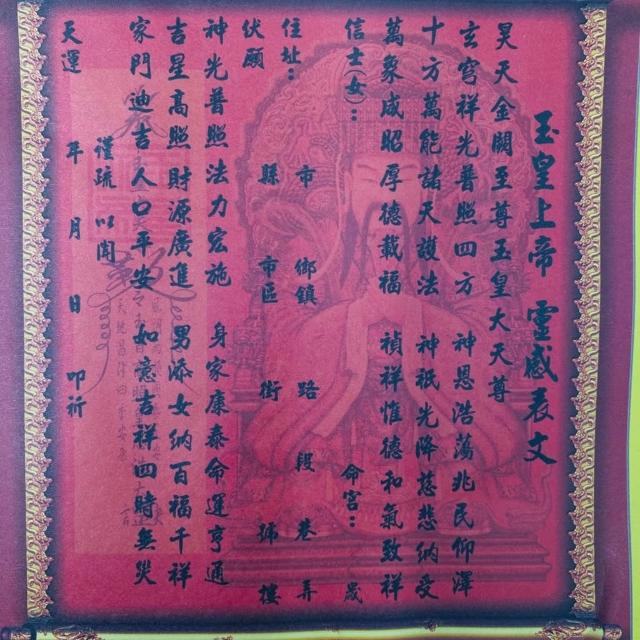 玉皇上帝 靈感表文
昊天金闕至尊玉皇大天尊
玄穹祥光普照四方 神恩浩蕩兆民仰澤
十方萬能諸天護法 神祇光降慈悲納受
萬象咸昭厚德載福 禎祥惟德和氣致祥
信士(女): 命宮: 歲
住址: 市 鄉鎮 路 段 巷 弄
縣 市區 街 號 樓
伏願
神光普照法力宏施 身家康泰命運亨通
吉星高照財源廣進 男添女納百福千祥
家門迪吉人口平安 如意吉祥四時無災
謹疏 以聞
天運 年 月 日 叩祈